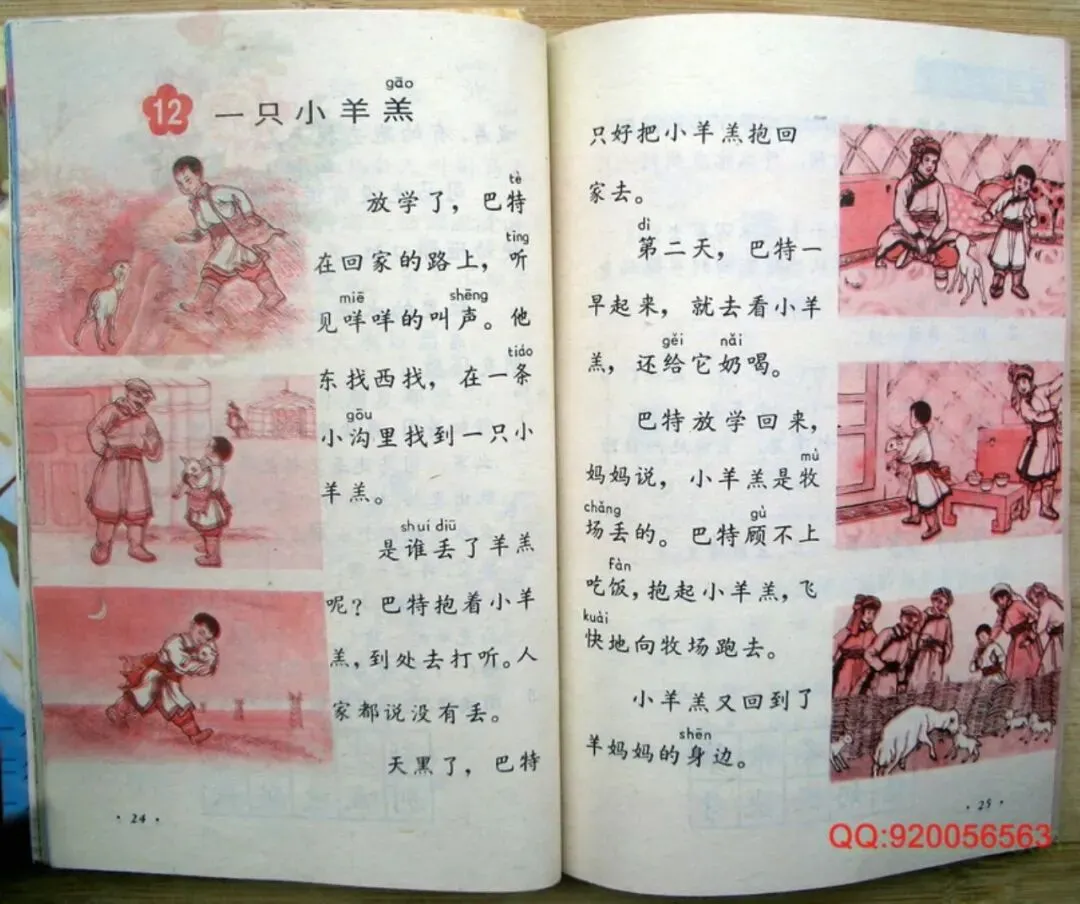 gāo
12 一只小羊羔
tè
放学了，巴特
tīng
在回家的路上，听
miē shēng
见咩咩的叫声。他
tiáo
东找西找，在一条
gōu
小沟里找到一只小
羊羔。
shuí diū
是谁丢了羊羔
呢？巴特抱着小羊
羔，到处去打听。人
家都说没有丢。
天黑了，巴特
·24·
只好把小羊羔抱回
家去。
dì
第二天，巴特一
早起来，就去看小羊
gěi nǎi
羔，还给它奶喝。
巴特放学回来，
mù
妈妈说，小羊羔是牧
chǎng gù
场丢的。巴特顾不上
fàn
吃饭，抱起小羊羔，飞
kuài
快地向牧场跑去。
小羊羔又回到了
shēn
羊妈妈的身边。
·25·
QQ:920056563